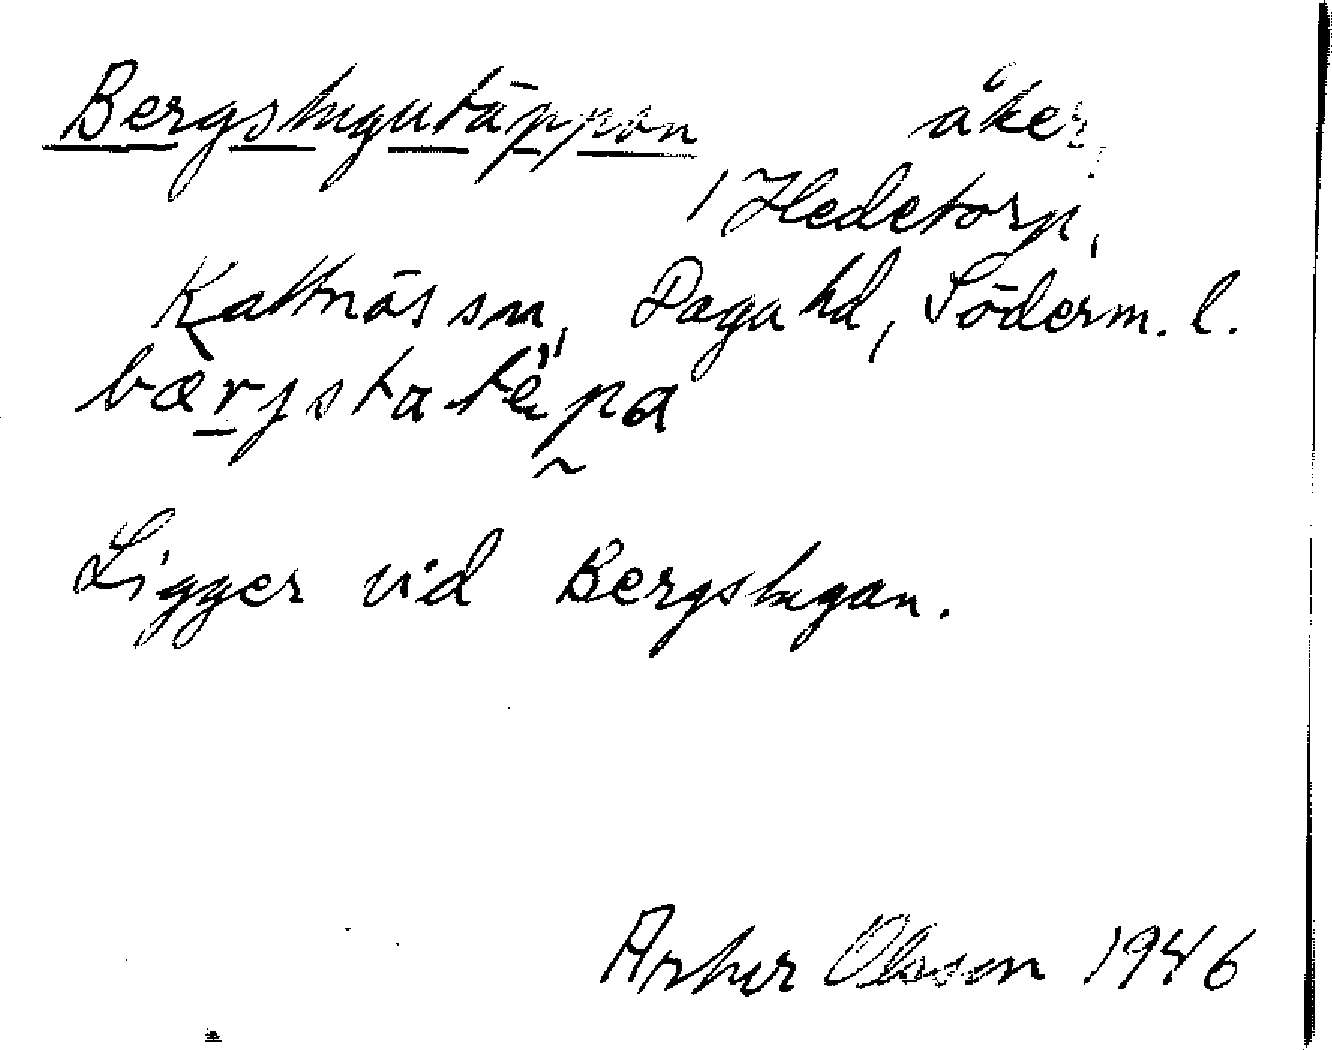 Bergstugutäppan åker,
i Hedetorp,
Kattnäs sn, Daga hd, Söderm. l.
bærjstatäpa
Ligger vid Bergstugan.
Olsson 1946